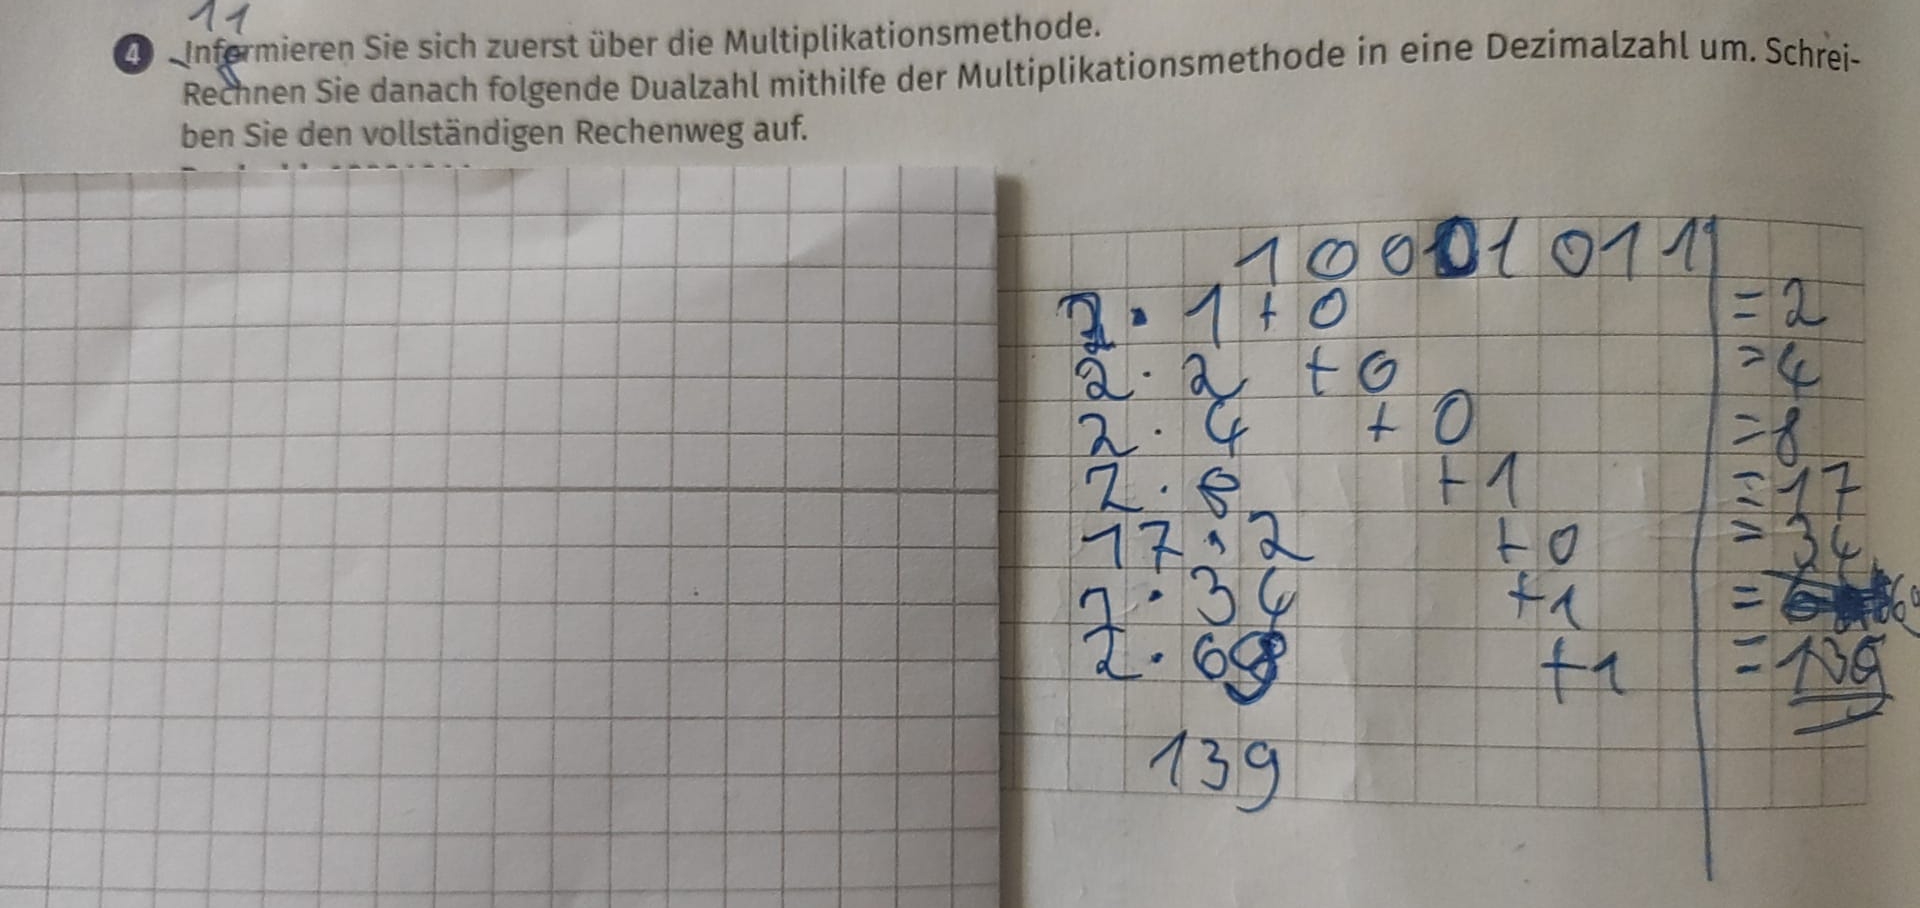 11
4 Informieren Sie sich zuerst über die Multiplikationsmethode.
Rechnen Sie danach folgende Dualzahl mithilfe der Multiplikationsmethode in eine Dezimalzahl um. Schrei-
ben Sie den vollständigen Rechenweg auf.
1 0 0 0 1 0 1 1
2 · 1 + 0 = 2
2 · 2 + 0 = 4
2 · 4 + 0 = 8
2 · 8 + 1 = 17
17 · 2 + 0 = 34
2 · 34 + 1 = 69
2 · 69 + 1 = 139
139